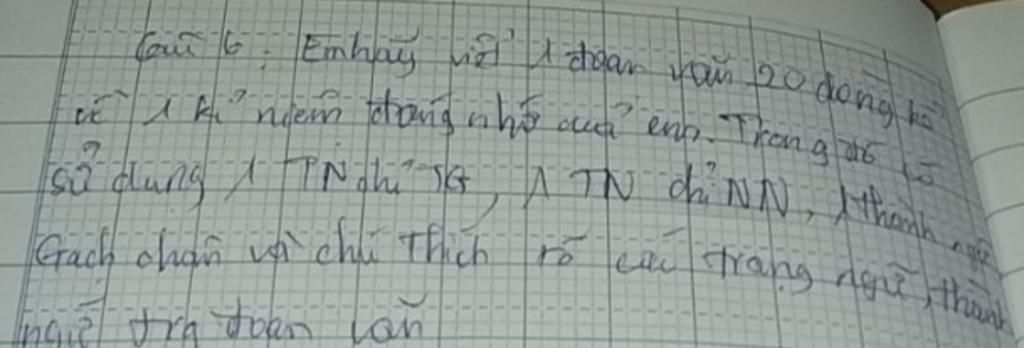 Câu 6: Em hãy viết 1 đoạn văn 20 dòng kể
về 1 kỉ niệm đáng nhớ của em. Trong đó có
sử dụng 1 TN chỉ TG, 1 TN chỉ NN, 1 thành ngữ
Gạch chân và chú thích rõ các trạng ngữ, thành
ngữ trg đoạn văn